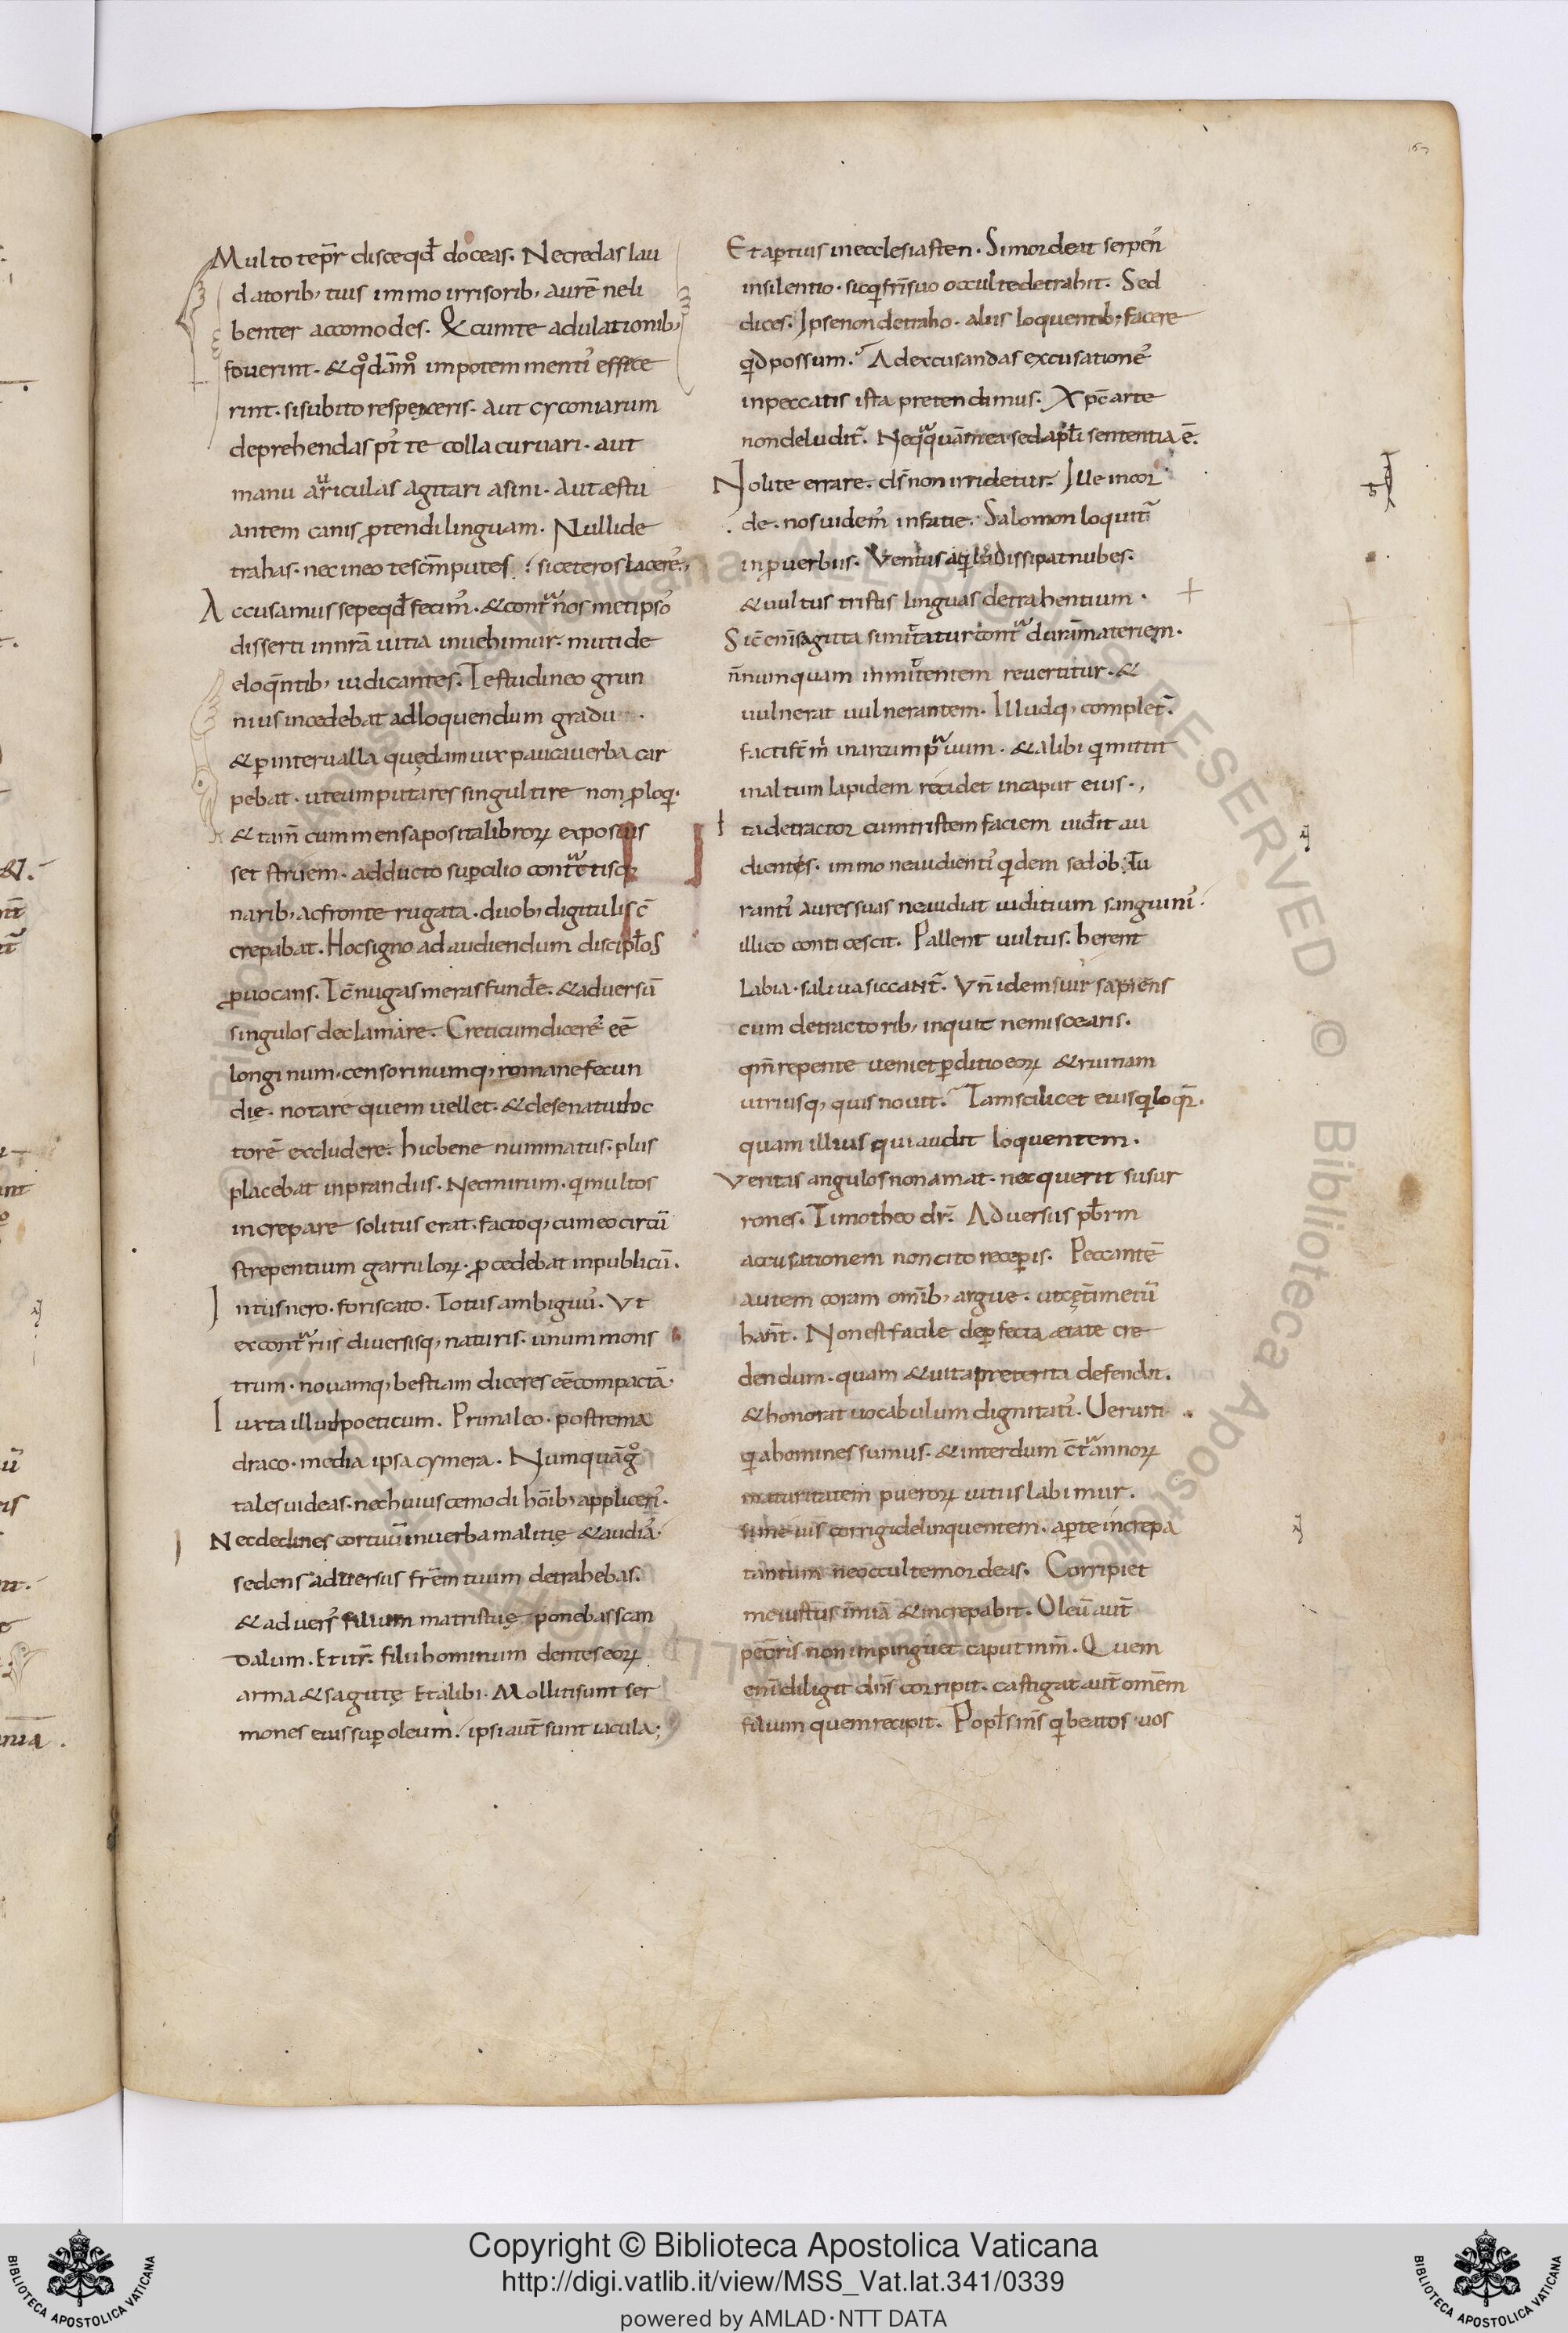 Multo tēpr̄ disce qd̄ doceas. Ne credas lau
datorib; tuis immo irrisorib; aurē ne li
benter accomodes. Q̇ cum te adulationib;
fouerint. & qͦdāmͦ impotem mentiˀ effice
rint. si subito respęxeris. aut cyconiarum
deprehendas pˀt te colla curuari. aut
manu auriculas agitari asini. aut æstu
antem canis ꝓtendi linguam. Nulli de
trahas. nec in eo te sc̄m putes. si ceteros laceres.
Accusamus sepe qd̄ fecimˀ. & contra nosmetipsoˀ
disserti in nrā uitia inuehimur. muti de
eloqn̄tib; iudicantes. Testudineo grun
nius incedebat ad loquendum gradu.
& ꝑ interualla quędam uix pauca uerba car
pebat. ut eum putares singultire non ꝓloqi.
& tam̄ cum mensa posita libroꝝ exposuis
set struem. adducto suꝑcilio contractisq;
narib; ac fronte rugata. duob; digitulis c̄
crepabat. Hoc signo ad audiendum disciplo̅s
ꝓuocans. Tc̄ nugas meras fund̄e. & aduersū
singulos declamare. Creticum diceresˀ eē
longinum. censorinumq; romane fecun
dię. notare quem uellet. & de senatu doc
torē excludere. hic bene nummatus. plus
placebat in prandiis. Nec mirum. qi multos
increpare solitus erat. factoq; cum eo circū
strepentium garruloꝝ. ꝓcedebat in publicū.
Intus nero. foris cato. Totus ambiguuˀ. Vt
ex contrariis diuersisq; naturis. unum mons
trum. nouamq; bestiam diceres eē compactā.
Iuxta illud poeticum. Prima leo. postrema
draco. media ipsa cymera. Numquā gͦ
tales uideas. nec huiuscemodi hōib; appliceriˀ.
Nec declines cor tuū in uerba malitię & audiaˀ.
sedens aduersus frēm tuum detrahebas.
& aduersˀ filium matris tuę ponebas scan
dalum. Et itr̄. filii hominum dentes eoꝝ
arma & sagittę Et alibi. Molliti sunt ser
mones eius suꝑ oleum. ipsi aut̄ sunt iacula;
Et aꝑtius in ecclesiasten. Si mordeat serpenˀ
in silentio. sic qi fr̄i suo occulte detrahit. Sed
dices. Ipse non detraho. aliis loquentib; facere
qid possum. Ad excusandas excusationeˀ
in peccatis ista pretendimus. Xpc̄ arte
non deluditˀ. Neqͣquā mea sed apl̄i sententia ē.
Nolite errare. dsˉ non irridetur. Ille in cor
de. nos uidemˀ in fatie. Salomon loquitˀ
in ꝓuerbiis. Ventus aqilo dissipat nubes.
& uultus tristis linguas detrahentium.
Sic̄ enī sagitta si mittatur contra durā materiem.
n̄numquam in mittentem reuertitur. &
uulnerat uulnerantem. Illudq; completˀ.
facti st̄ mˀ in arcum prauum. & alibi qi mittit
in altum lapidem recidet in caput eius.,
Ita detractor cum tristem faciem uid̄it au
dientes. immo ne audientiˀ qidem sed ob:tu
rantiˀ aures suas ne audiat iuditium sanguiniˀ.
illico conticescit. Pallent uultus. herent
labia. saliua siccatˀ. Vn̄ idem uir sapiens
cum detractorib; inquit ne miscearis.
qm̄ repente ueniet ꝑditio eoꝝ & ruinam
utriusq; quis nouit. Tam scilicet eius qi loqr̄.
quam illius qui audit loquentem.
Veritas angulos non amat. nec querit susur
rones. Timotheo dr̄. Aduersus pb̄rm
accusationem non cito receꝑis. Peccantē
autem coram omīb; argue. ut cęt̄i metū
hant̄. Non est facile de ꝑfecta ætate cre
dendum. quam & uita preterita defendit.
& honorat uocabulum dignitatiˀ. Uerum
qia homines sumus. & interdum ct̄ra annoꝝ
maturitatem pueroꝝ uitiis labimur.
si me uis corrigi delinquentem. aꝑte increpa
tantum ne occulte mordeas. Corripiet
me iustus in mīa & increpabit. Oleū aut̄
peccōris non impinguet caput mm̄. Quem
enī diligit dn̄s corripit. castigat aut̄ omēm
filium quem recipit. Popl̄s ms̄ qi beatos uos
Copyright © Biblioteca Apostolica Vaticana
http://digi.vatlib.it/view/MSS_Vat.lat.341/0339
powered by AMLAD·NTT DATA
BIBLIOTECA APOSTOLICA VATICANA
BIBLIOTECA APOSTOLICA VATICANA